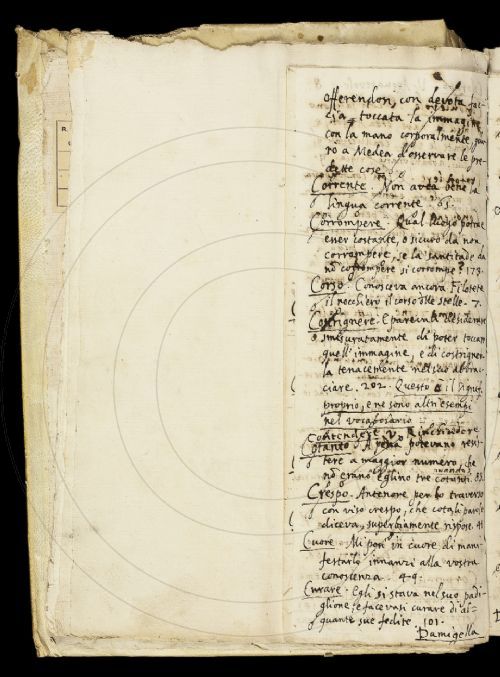 offerendosi, con devota fac
cia toccata la immagine
con la mano corporalmente, giu
rò a Medea d'osservare le pre
dette cose.
Corrente. Non avea bene la
lingua corrente. 65.
Corrompere. Qual luogo potrae
esser costante, o sicuro da non
corrompere, se la santitade da
nō corrompere si corrompe? 173.
Corso. Conosceva ancora Filotete
il nocchiero il corso delle stelle. 7.
Costrignere. E pareva desiderare
smisuratamente di poter toccare
quell'immagine, e di costrigner
la tenacemente nel suo abbra
ciare. 202. Questo è il signif.
proprio, e ne sono altri esempi
nel vocabolario
Contendere. V.
Cotanto. A pena potevano resi
tere a maggior numero, che
nō erano Eglino tre cotanti. 83.
Crespo. Antenore per lo traverso
con viso crespo, che cotali parole
diceva, superbiamente rispose.
Cuore. Mi posi in cuore di mani
festarlo innanzi alla vostra
conoscenza. 49.
Curare. Egli si stava nel suo padi
glione, e facevasi curare di al=
quante sue fedite. 101.
Damigella